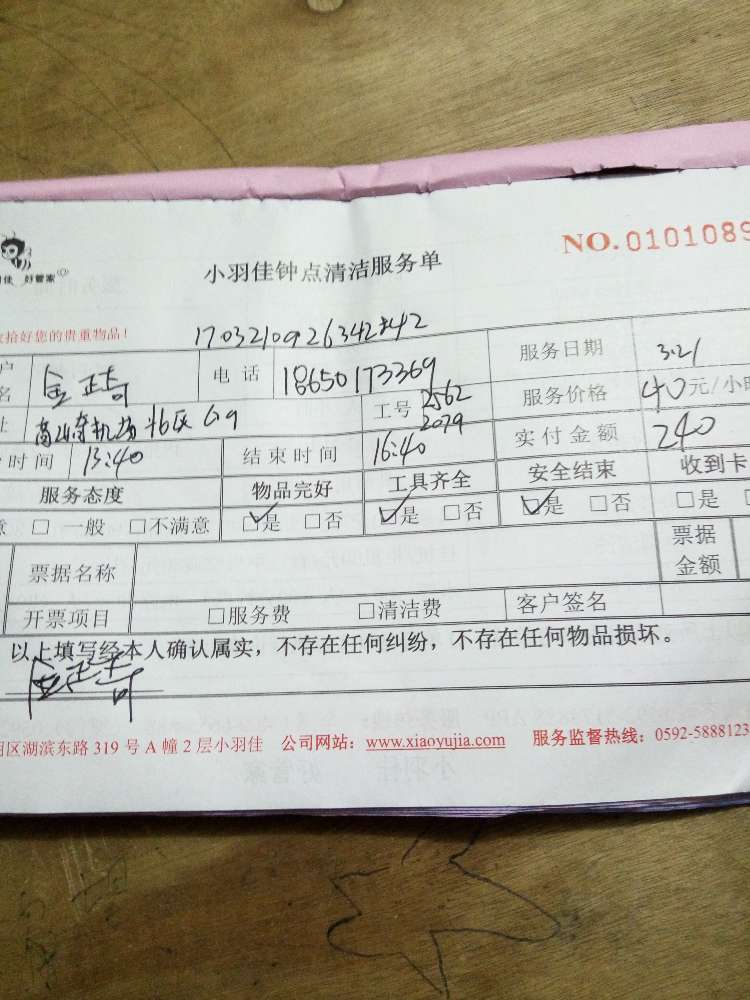 NO.0101089
小羽佳钟点清洁服务单
佳 好管家
拾好您的贵重物品！
170321092634242
户 名 金正奇 电 话 18650173369 服务日期 3.21
址 高崎机场 北区 69 工号 2562 2079 服务价格 40元/小时
时间 13:40 结束时间 16:40 实付金额 240
服务态度 物品完好 工具齐全 安全结束 收到卡
意 □ 一般 □不满意 ☑是 □否 ☑是 □否 ☑是 □否 □是
票据名称 票据金额
开票项目 □服务费 □清洁费 客户签名
以上填写经本人确认属实，不存在任何纠纷，不存在任何物品损坏。
金正奇
明区湖滨东路 319 号 A 幢 2 层小羽佳 公司网站：www.xiaoyujia.com 服务监督热线：0592-5888123